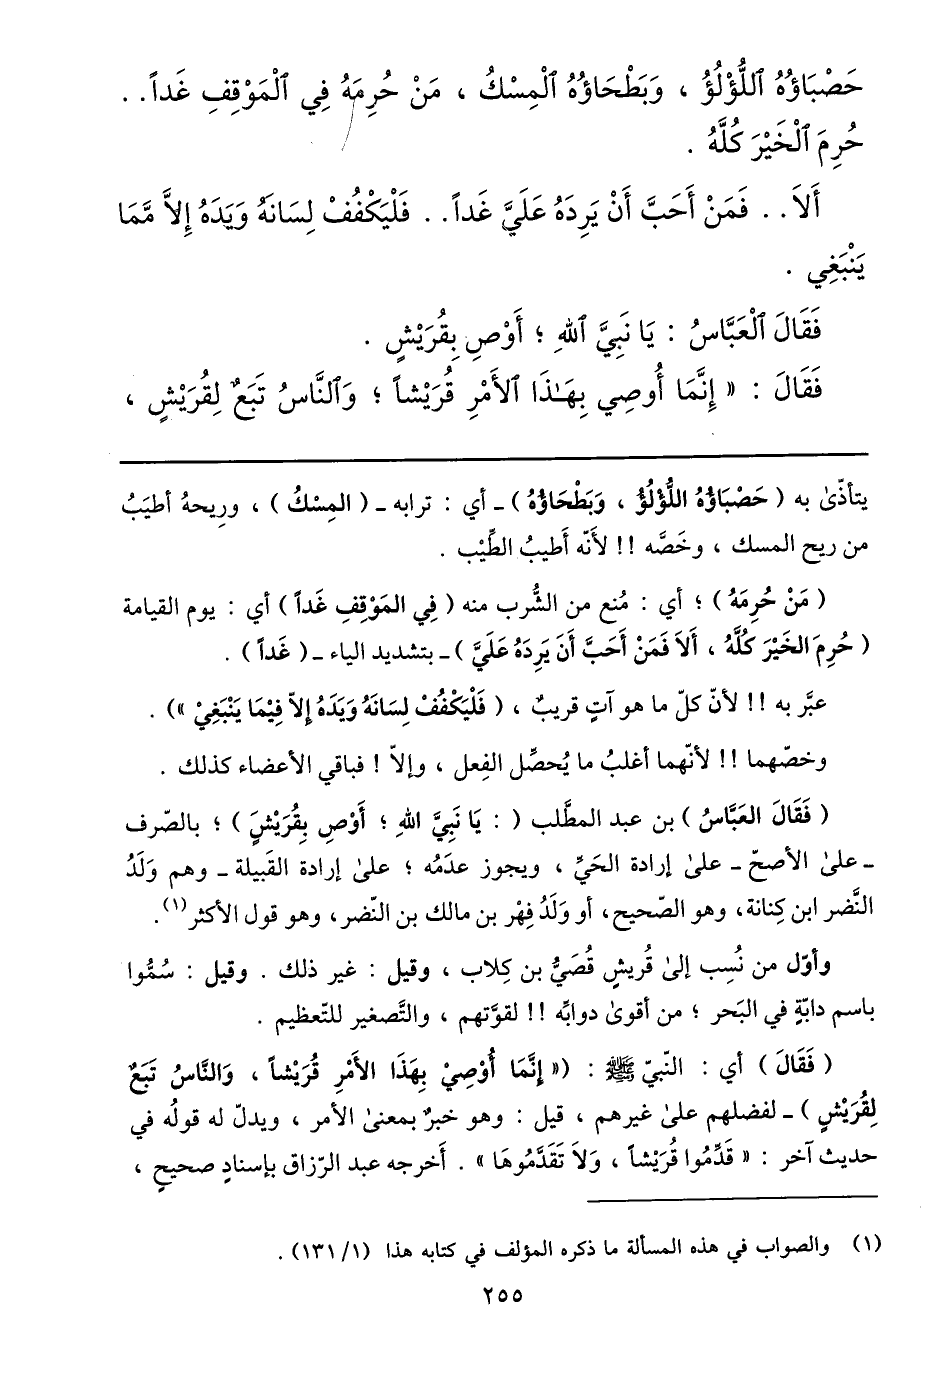 حَصْبَاؤُهُ ٱللُّؤْلُؤُ ، وَبَطْحَاؤُهُ ٱلْمِسْكُ ، مَنْ حُرِمَهُ فِي ٱلْمَوْقِفِ غَداً . .
حُرِمَ ٱلْخَيْرَ كُلَّهُ .
أَلاَ . . فَمَنْ أَحَبَّ أَنْ يَرِدَهُ عَلَيَّ غَداً . . فَلْيَكْفُفْ لِسَانَهُ وَيَدَهُ إِلاَّ مَّمَا
يَنْبَغِي .
فَقَالَ ٱلْعَبَّاسُ : يَا نَبِيَّ ٱللهِ ؛ أَوْصِ بِقُرَيْشٍ .
فَقَالَ : « إِنَّمَا أُوصِي بِهَـٰذَا ٱلأَمْرِ قُرَيْشاً ؛ وَٱلنَّاسُ تَبَعٌ لِقُرَيْشٍ ،
يتأذّىٰ به ( حَصْبَاؤُهُ اللُّؤْلُؤُ ، وَبَطْحَاؤُهُ ) ـ أي : ترابه ـ ( المِسْكُ ) ، وريحهُ أطيَبُ
من ريح المسك ، وخَصَّه !! لأَنّه أَطيبُ الطِّيْب .
( مَنْ حُرِمَهُ ) ؛ أي : مُنع من الشُّرب منه ( فِي المَوْقِفِ غَداً ) أي : يوم القيامة
( حُرِمَ الخَيْرَ كُلَّهُ ، أَلاَ فَمَنْ أَحَبَّ أَنَ يَرِدَهُ عَلَيَّ ) ـ بتشديد الياء ـ ( غَداً ) .
عبَّر به !! لأنّ كلّ ما هو آتٍ قريبٌ ، ( فَلْيَكْفُفْ لِسَانَهُ وَيَدَهُ إِلاّ فِيْمَا يَنْبَغِيْ » ) .
وخصّهما !! لأنّهما أغلبُ ما يُحصِّل الفِعل ، وإلاّ ! فباقي الأعضاء كذلك .
( فَقَالَ العَبَّاسُ ) بن عبد المطَّلب ( : يَا نَبِيَّ اللهِ ؛ أَوْصِ بِقُرَيْشَ ) ؛ بالصّرف
ـ علىٰ الأصحّ ـ علىٰ إرادة الحَيِّ ، ويجوز عدَمُه ؛ علىٰ إرادة القَبيلة ـ وهم وَلَدُ
النَّضر ابن كِنانة، وهو الصّحيح، أو وَلَدُ فِهْر بن مالك بن النّضر، وهو قول الأكثر(١).
وأوّل من نُسِب إلىٰ قُريشٍ قُصَيُّ بن كِلاب ، وقيل : غير ذلك . وقيل : سُمُّوا
باسم دابّةٍ في البَحر ؛ من أقوىٰ دوابِّه !! لقوَّتهم ، والتَّصغير للتّعظيم .
( فَقَالَ ) أي : النّبيّ ﷺ : (« إِنَّمَا أُوْصِيْ بِهَذَا الأَمْرِ قُرَيْشاً ، وَالنَّاسُ تَبَعٌ
لِقُرَيْشٍ ) ـ لفضلهم علىٰ غيرهم ، قيل : وهو خبرٌ بمعنىٰ الأمر ، ويدلّ له قولُه في
حديث آخر : « قَدِّمُوا قُرَيْشاً ، وَلاَ تَقَدَّمُوهَا » . أخرجه عبد الرّزاق بإسنادٍ صحيحٍ ،
(١) والصواب في هذه المسألة ما ذكره المؤلف في كتابه هذا (١/ ١٣١) .
٢٥٥